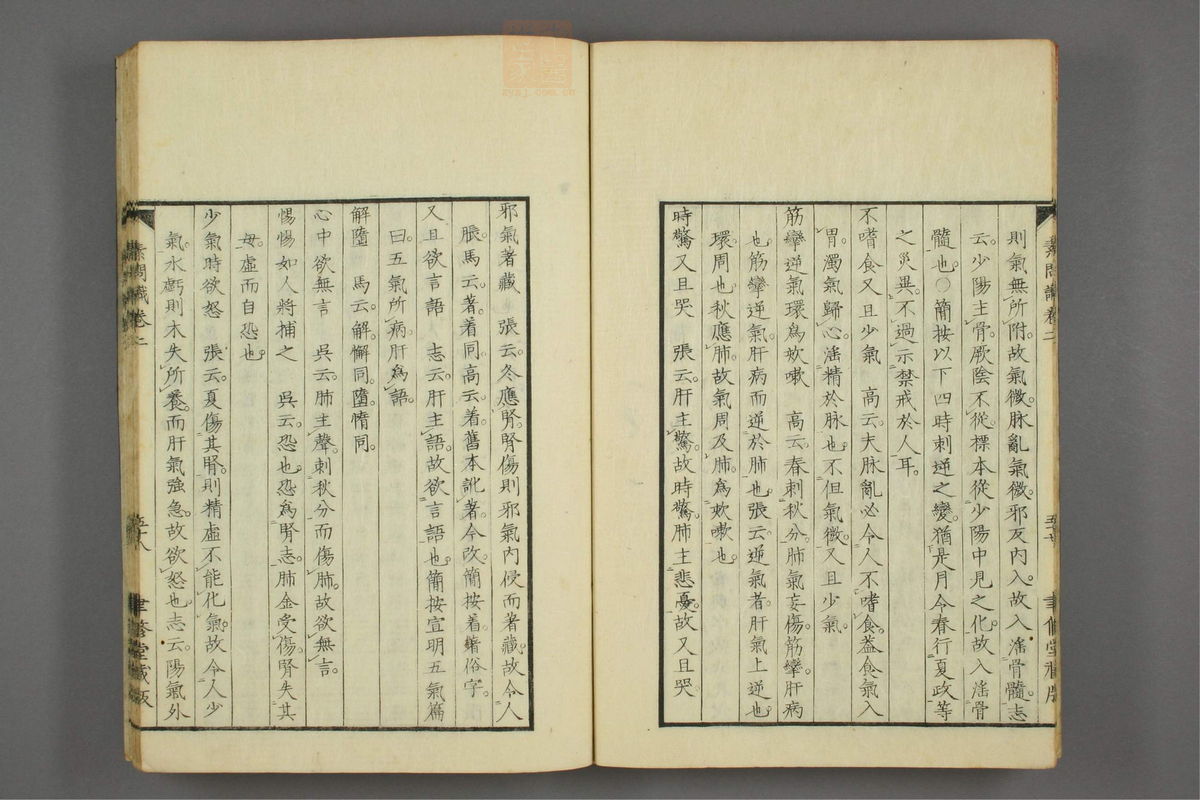 素問識卷二
五十七
聿修堂藏版
則氣無所附。故氣微。脉亂氣微。邪反內入。故入淫骨髓。志
云。少陽主骨。厥陰不從標本。從少陽中見之化。故入淫骨
髓也。○簡按以下四時刺逆之變。猶是月令春行夏政等
之災異。不過示禁戒於人耳。
不嗜食又且少氣　高云。夫脉亂必令人不嗜食。葢食氣入
胃。濁氣歸心。淫精於脉也。不但氣微。又且少氣。
筋攣逆氣環爲欬嗽　高云。春刺秋分。肺氣妄傷。筋攣肝病
也。筋攣逆氣。肝病而逆於肺也。張云。逆氣者。肝氣上逆也。
環。周也。秋應肺。故氣周及肺。爲欬嗽也。
時驚又且哭　張云。肝主驚。故時驚。肺主悲憂。故又且哭。
邪氣著藏　張云。冬應腎。腎傷則邪氣內侵而著藏。故令人
脹。馬云。著。着同。高云。着。舊本訛著。今改。簡按着。著俗字。
又且欲言語　志云。肝主語。故欲言語也。簡按宣明五氣篇
曰。五氣所病。肝爲語。
解墮　馬云。解。懈同。墮。惰同。
心中欲無言　吳云。肺主聲。刺秋分而傷肺。故欲無言。
惕惕如人將捕之　吳云。恐也。恐爲腎志。肺金受傷。腎失其
母。虛而自恐也。
少氣時欲怒　張云。夏傷其腎。則精虛不能化氣。故令人少
氣。水虧則木失所養。而肝氣強急。故欲怒也。志云。陽氣外
素問識卷二
五十八
聿修堂藏版